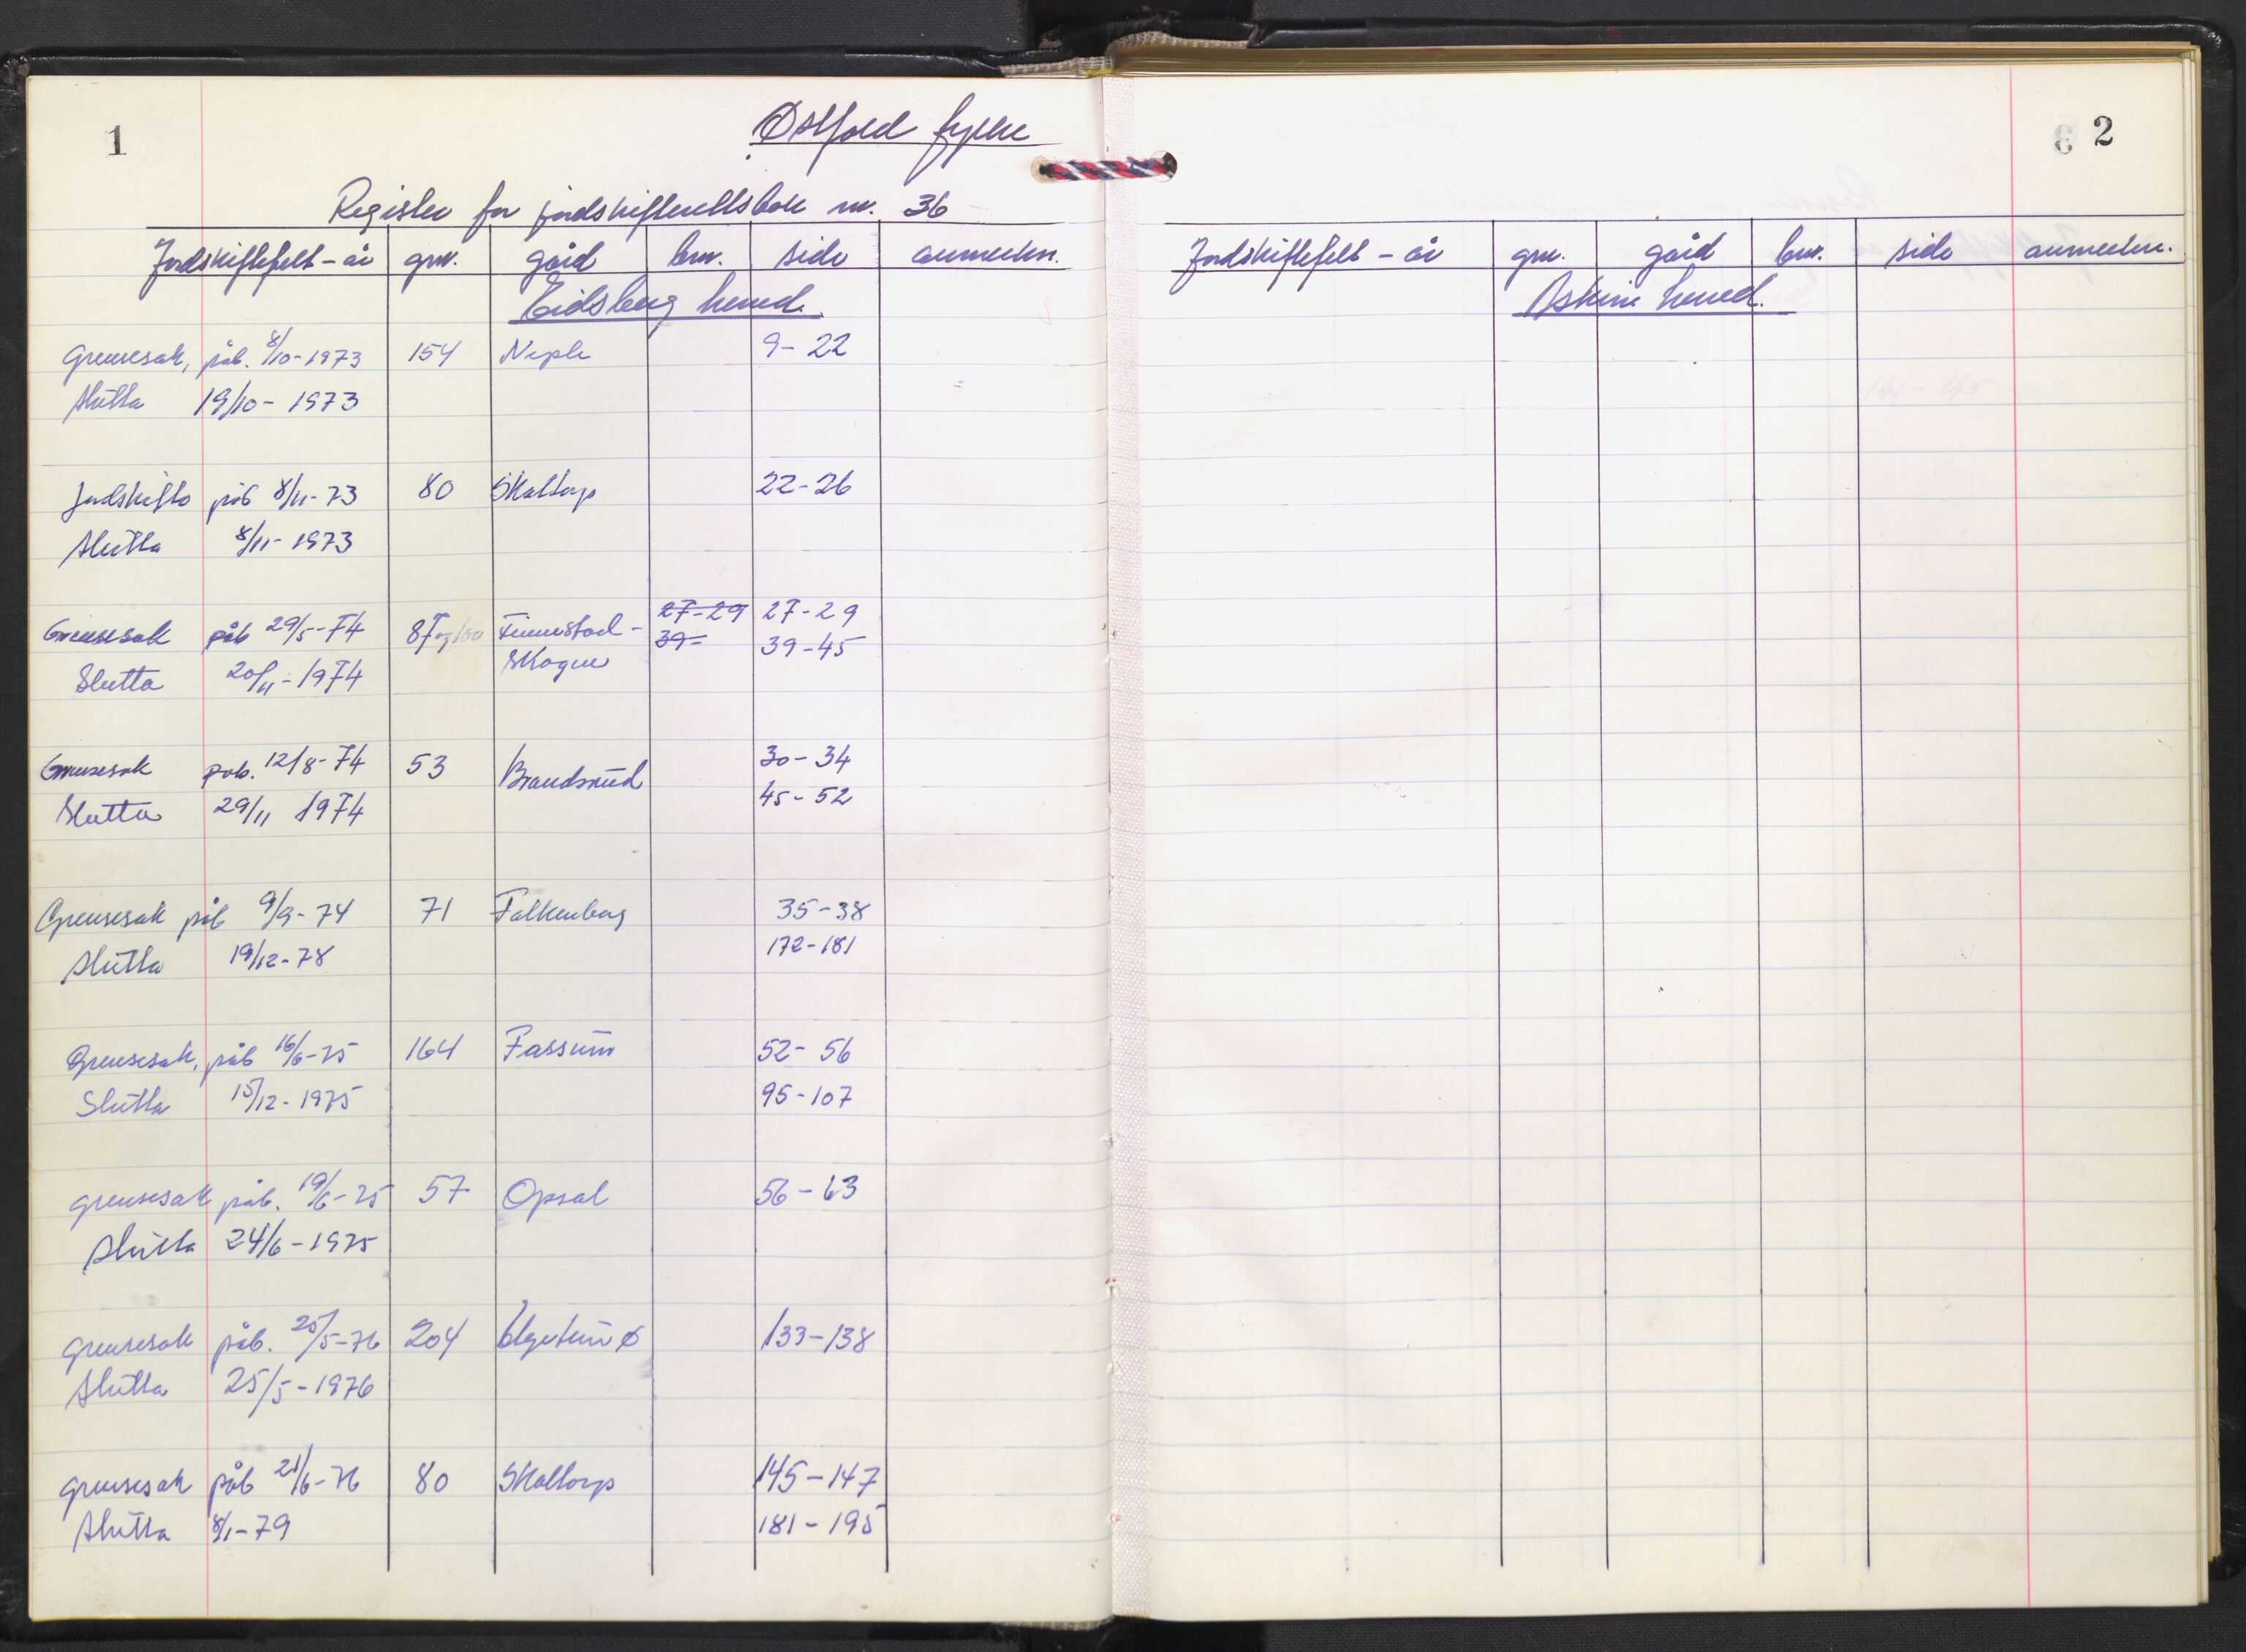 1
Østfold fylke
Register for jordskifterettsbok nr. 36
Jordskiftefelt - år gnr. gård bnr. side anmerkn.
Eidsberg herred.
Grensesak, påb. 8/10-1973 154 Neple 9-22
slutta 19/10-1973
Jordskifte påb 8/11-73 80 Skaltorp 22-26
slutta 8/11-1973
Grensesak påb 29/5-74 87 og 150 Finnestad- 27-29 27-29
skogen 39- 39-45
Slutta 20/11-1974
Grensesak påb. 12/8-74 53 Brandsrud 30-34
Slutta 29/11 1974 45-52
Grensesak påb 9/9-74 71 Falkenberg 35-38
slutta 19/12-78 172-181
Grensesak, påb 16/6-75 164 Fossum 52-56
Slutta 15/12-1975 95-107
grensesak påb. 19/6-75 57 Opsal 56-63
slutta 24/6-1975
grensesak påb. 25/5-76 204 133-138
slutta 25/5-1976
grensesak påb 21/6-76 80 Skaltorp 145-147
slutta 8/1-79 181-195
2
Jordskiftefelt - år gnr. gård bnr. side anmerkn.
Askim herred.